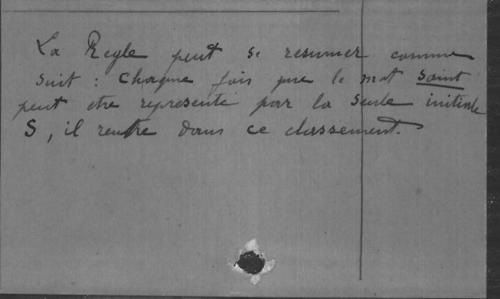 La Regle peut se resumer comme
suit : Chaque fois que le mot saint
peut etre represente par la seule initiale
S, il rentre dans ce classement.